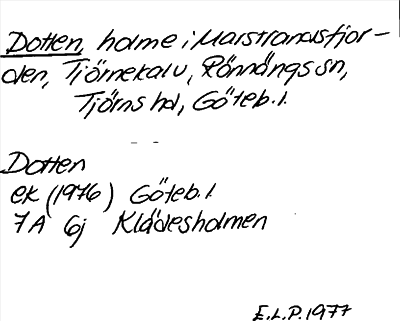 Dotten, holme i Marstrandsfjor-
den, Tjörnekalv, Rönnängs sn,
Tjörns hd, Göteb. l.
Dotten
ek (1976) Göteb. l.
7A 6j Klädesholmen
E.L.P. 1977